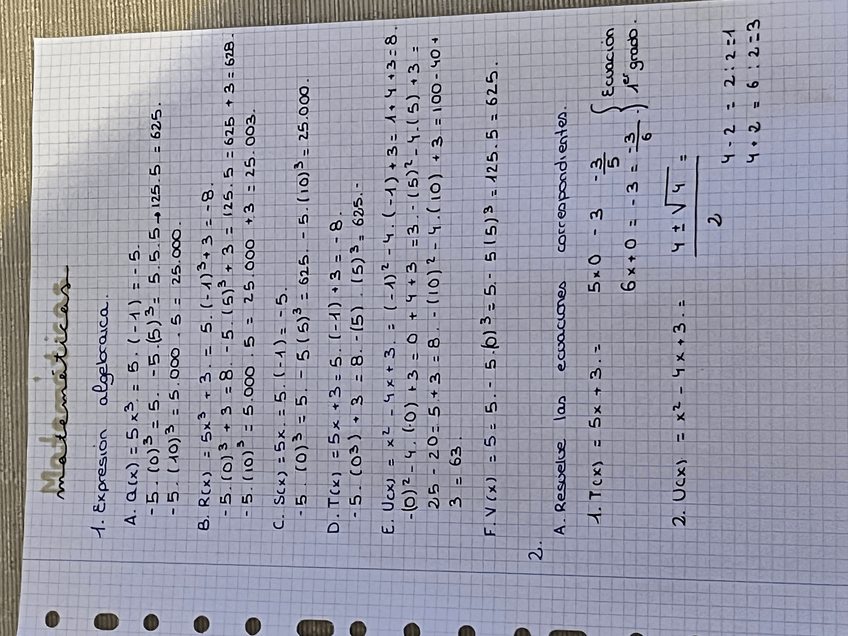 Matemáticas
matemáticas.
1. Expresión algebraica.
A. Q(x) = 5x³. = 5. (-1) = -5.
- 5. (0)³ = 5. - 5.(5)³ = 5.5.5 → 125.5 = 625.
- 5. (10)³ = 5.000.5 = 25.000.
B. R(x) = 5x³ + 3. = 5.(-1)³+3 = -8.
- 5. (0)³ + 3 = 8. - 5. (5)³ + 3 = 125.5 = 625 + 3 = 628.
- 5. (10)³ = 5.000.5 = 25.000 + 3 = 25.003.
C. S(x) = 5x. = 5.(-1) = -5.
- 5. (0)³ = 5. - 5(5)³ = 625. - 5.(10)³ = 25.000.
D. T(x) = 5x + 3 = 5. (-1) + 3 = -8.
- 5. (03) + 3 = 8. - (5). (5)³ = 625.-
E. U(x) = x² - 4x + 3. = (-1)² - 4. (-1) + 3 = 1 + 4 + 3 = 8.
-(0)² - 4. (0) + 3 = 0 + 4 + 3 = 3. - (5)² - 4. (5) + 3 =
25 - 20 = 5 + 3 = 8. - (10)² - 4. (10) + 3. = 100 - 40 +
3 = 63.
F. V(x) = 5 = 5. - 5.(0)³ = 5. - 5(5)³ = 125.5 = 625.
2.
A. Resuelve las ecuaciones correspondientes.
1. T(x) = 5x + 3. = 5x0 - 3 -3/5
6x + 0 = -3 = -3/6. } Ecuación 1er grado.
2. U(x) = x² - 4x + 3. = 4 ± √4 / 2 =
4 - 2 = 2 : 2 = 1
4 + 2 = 6 : 2 = 3